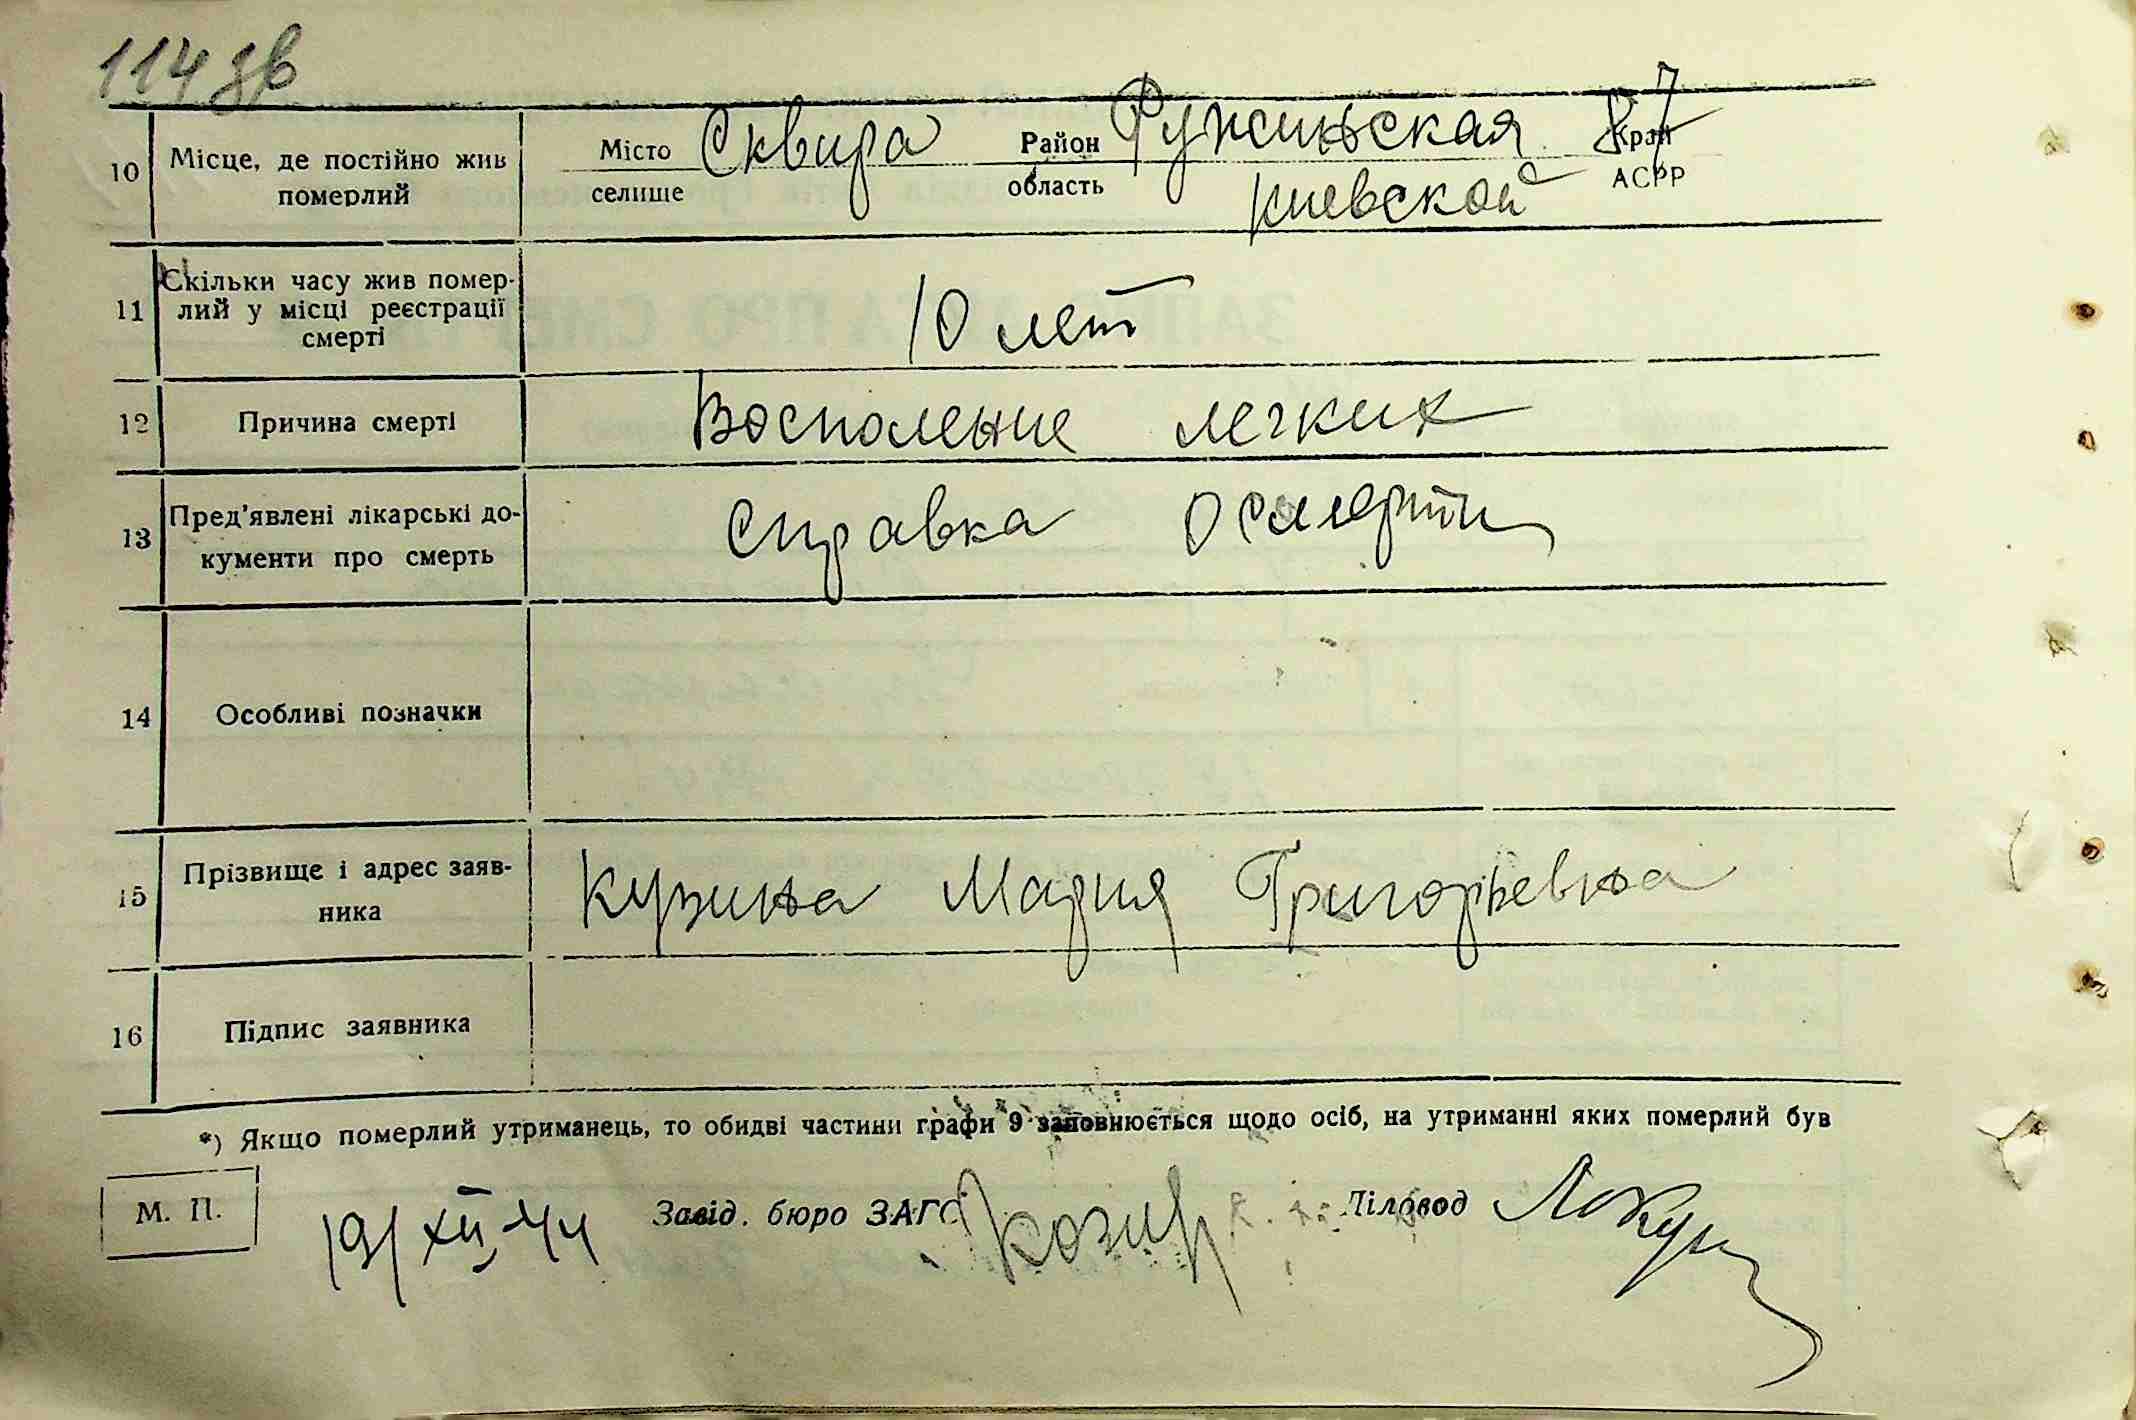 114 зв
10 Місце, де постійно жив померлий
Місто селище Сквира Район область Ружинская 87 Край АСРР
Киевской
11 Скільки часу жив помер-
лий у місці реєстрації
смерті
10 лет
12 Причина смерті Восполение легких
13 Пред'явлені лікарські до-
кументи про смерть
Справка О смерти
14 Особливі позначки
15 Прізвище і адрес заяв-
ника
Кузина Мария Григорьевна
16 Підпис заявника
*) Якщо померлий утриманець, то обидві частини графи 9 заповнюється щодо осіб, на утриманні яких померлий був
М. П. 19/XII-44 Завід. бюро ЗАГС Козир Діловод